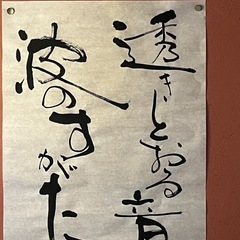 透きとおる音
波のすがた